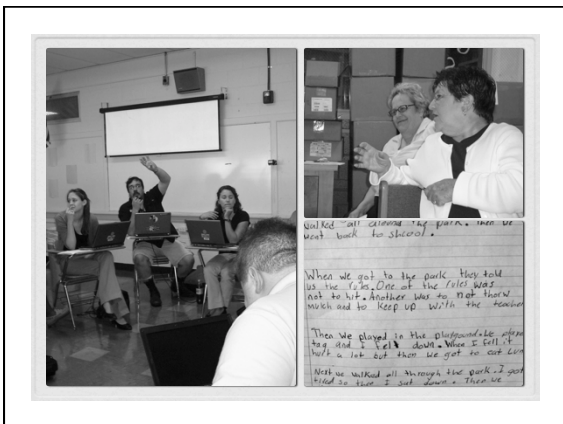 walked all around the park. Then we
went back to shcool.
When we got to the park they told
us the rules. One of the rules was
not to hit. Another was to not thorw
mulch and to keep up with the teacher
Then we played in the playground. We played
tag and I fell down. When I fell it
hurt a lot but then we got to eat
Next we walked all through the park. I got
tired so then I sat down. Then we